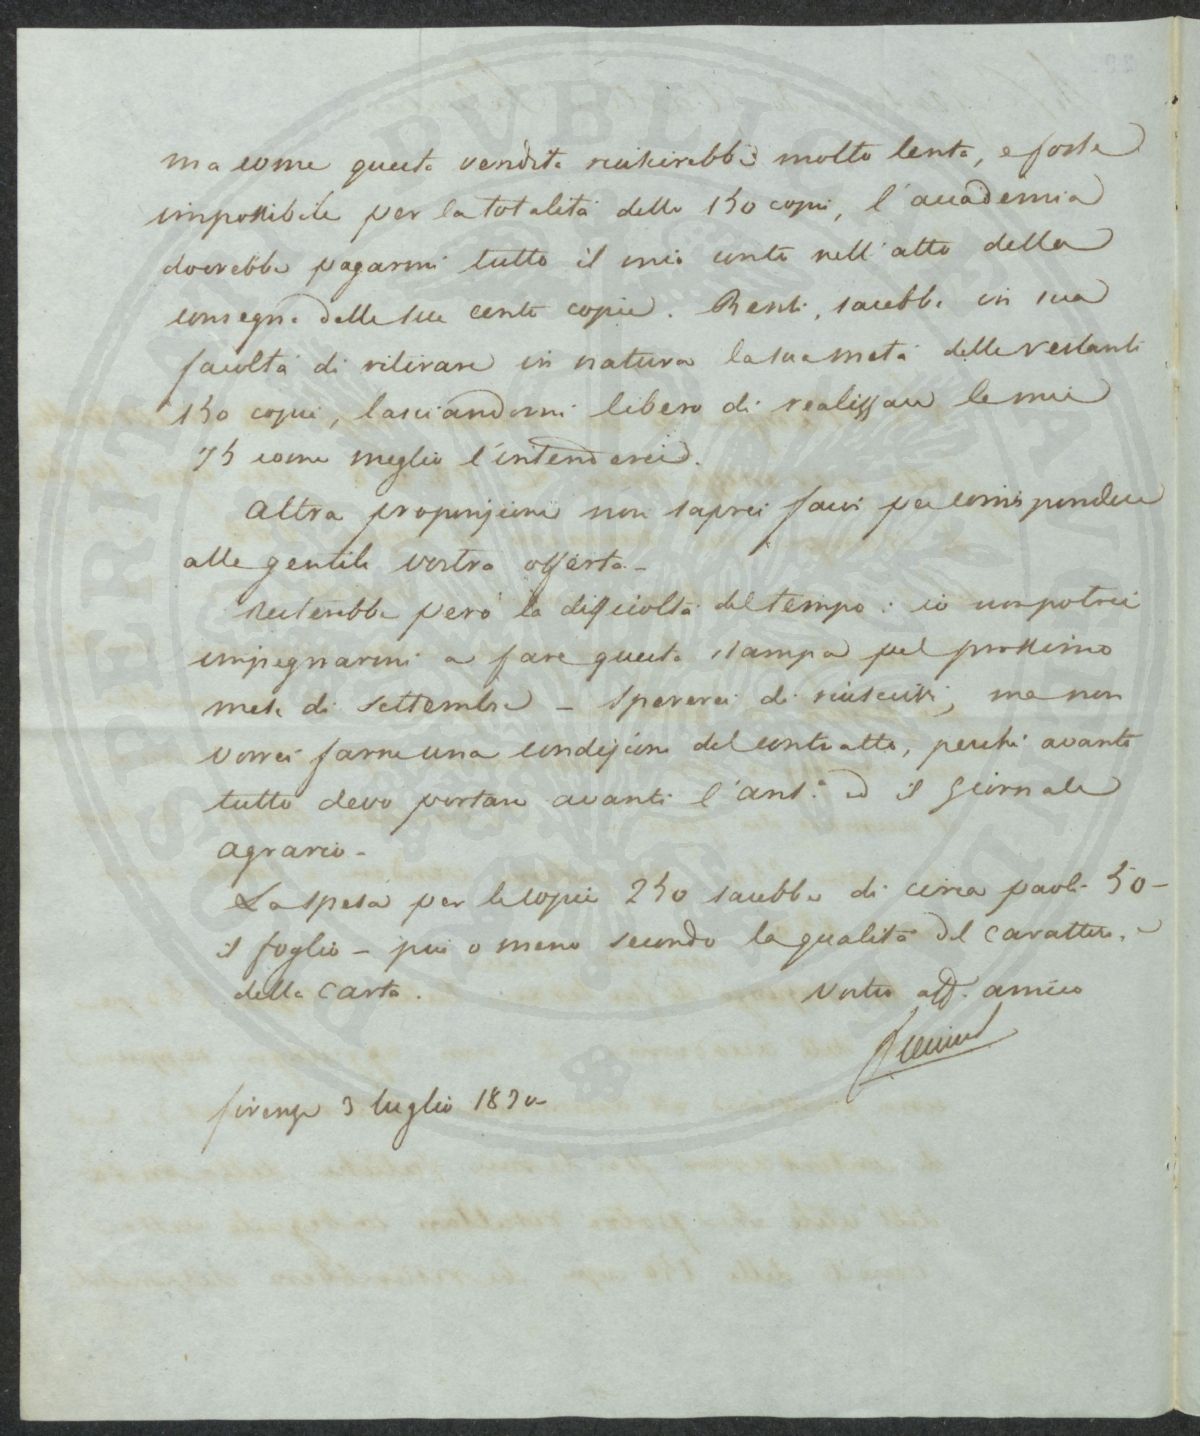 ma come questa vendita riuscirebbe molto lenta, e forse
impossibile per la totalità delle 150 copie, l'accademia
dovrebbe pagarmi tutto il mio conto nell'atto della
consegna delle sue cento copie. Resti, sarebbe in sua
facoltà di ritirare in natura la sua metà delle restanti
150 copie, lasciandomi libero di realizzare le mie
75 come meglio l'intenderei.
Altra proposizione non saprei farvi per corrispondere
alle gentile vostra offerta.
Resterebbe però la difficoltà del tempo: io non potrei
impegnarmi a fare questa stampa pel prossimo
mese di settembre – spererei di riuscirvi, ma non
vorrei farne una condizione del contratto, perché avanti
tutto devo portare avanti l'ant.a ed il Giornale
agrario –
La spesa per le copie 250 sarebbe di circa paoli 50 –
il foglio – più o meno secondo la qualità del carattere, e
della carta. Vostro aff. amico
Firenze 3 luglio 1830